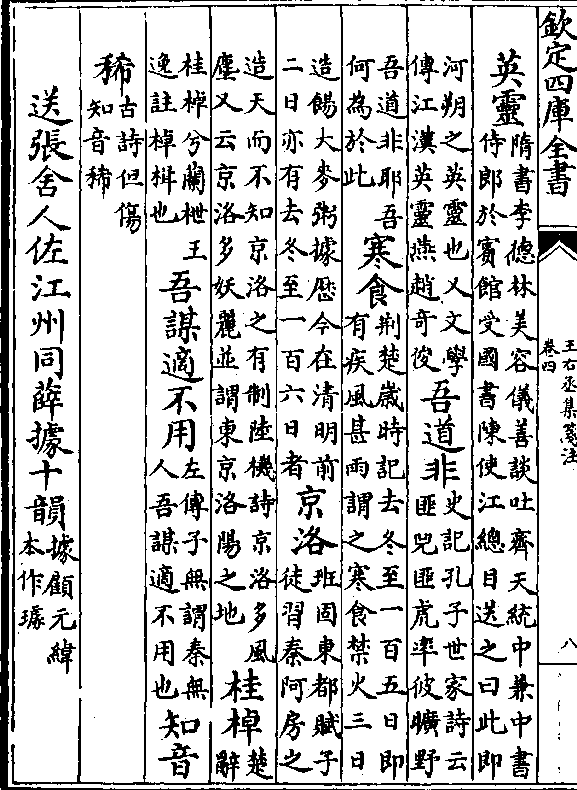 欽定四庫全書
王右丞集箋注
卷四
八
英靈
隋書李德林美容儀善談吐齊天統中兼中書
侍郎於賓館受國書陳使江總目送之曰此即
河朔之英靈也又文學
傳江漢英靈燕趙奇俊
吾道非
史記孔子世家詩云
匪兕匪虎率彼曠野
吾道非耶吾
何為於此
寒食
荆楚歲時記去冬至一百五日即
有疾風甚雨謂之寒食禁火三日
造餳大麥粥據歷今在清明前
二日亦有去冬至一百六日者
京洛
班固東都賦子
徒習秦阿房之
造天而不知京洛之有制陸機詩京洛多風
塵又云京洛多妖麗並謂東京洛陽之地
桂棹
楚
辭
桂棹兮蘭枻王
逸註棹楫也
吾謀適不用
左傳子無謂秦無
人吾謀適不用也
知音
稀
古詩但傷
知音稀
送張舍人佐江州同薛據十韻
據顧元緯
本作璩